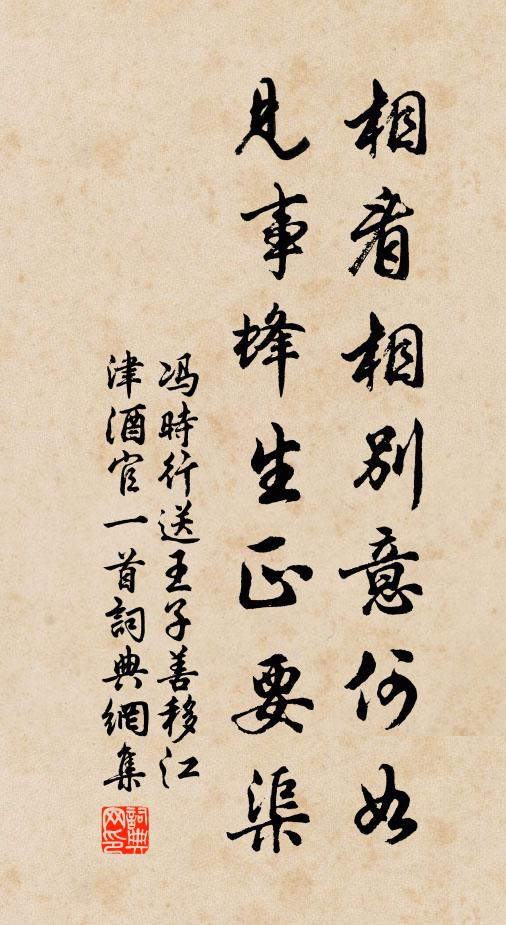 相看相別意何如
見事蜂生正要渠
馮時行送王子善移江
津酒官一首詞典網集
詞典网印